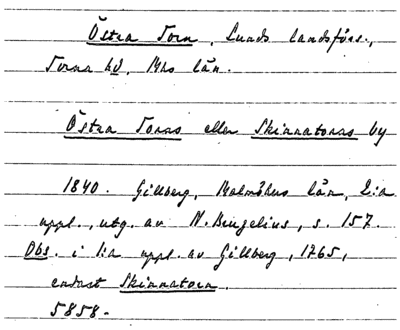 Östra Torn, Lunds landsförs.,
Torna hd, Mhs län.
Östra Torns eller Skinnatorns by
1840. Gillberg, Malmöhus län, 2:a
uppl., utg. av N. Bruzelius, s. 157.
Obs. i 1:a uppl. av Gillberg, 1765,
endast Skinnatorn.
5858.